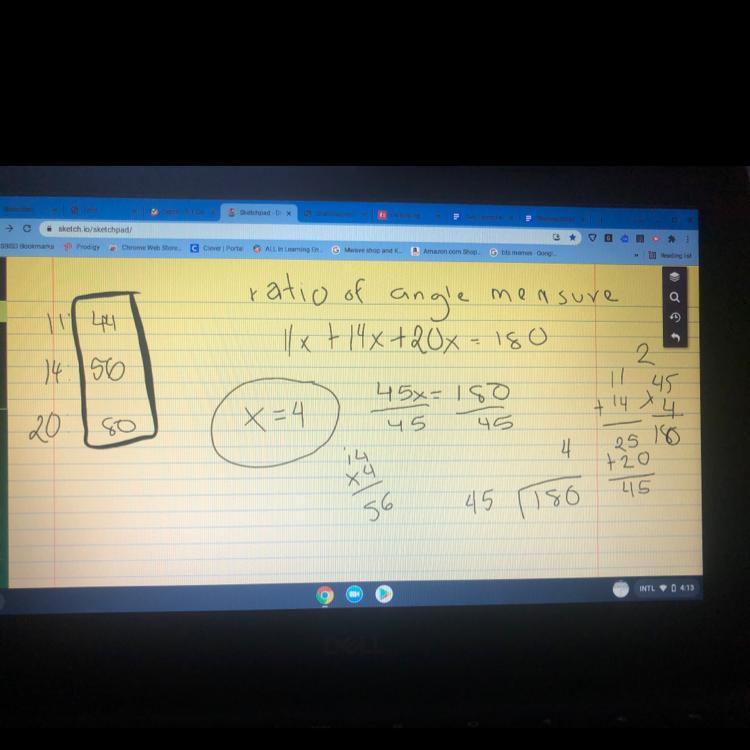 Sketchpad - Dr
sketch.io/sketchpad/
Bookmarks
Prodigy
Chrome Web Store...
Clever | Portal
ALL In Learning
Amazon.com Shop...
bts memes - Googl...
Reading list
ratio of angle measure
11x + 14x + 20x = 180
11: 44
14: 56
20 80
45x = 180
45 45
x = 4
14
x4
56
4
45 180
11
+ 14
25
+20
45
2
45
x 4
180
INTL 4:13
DELL